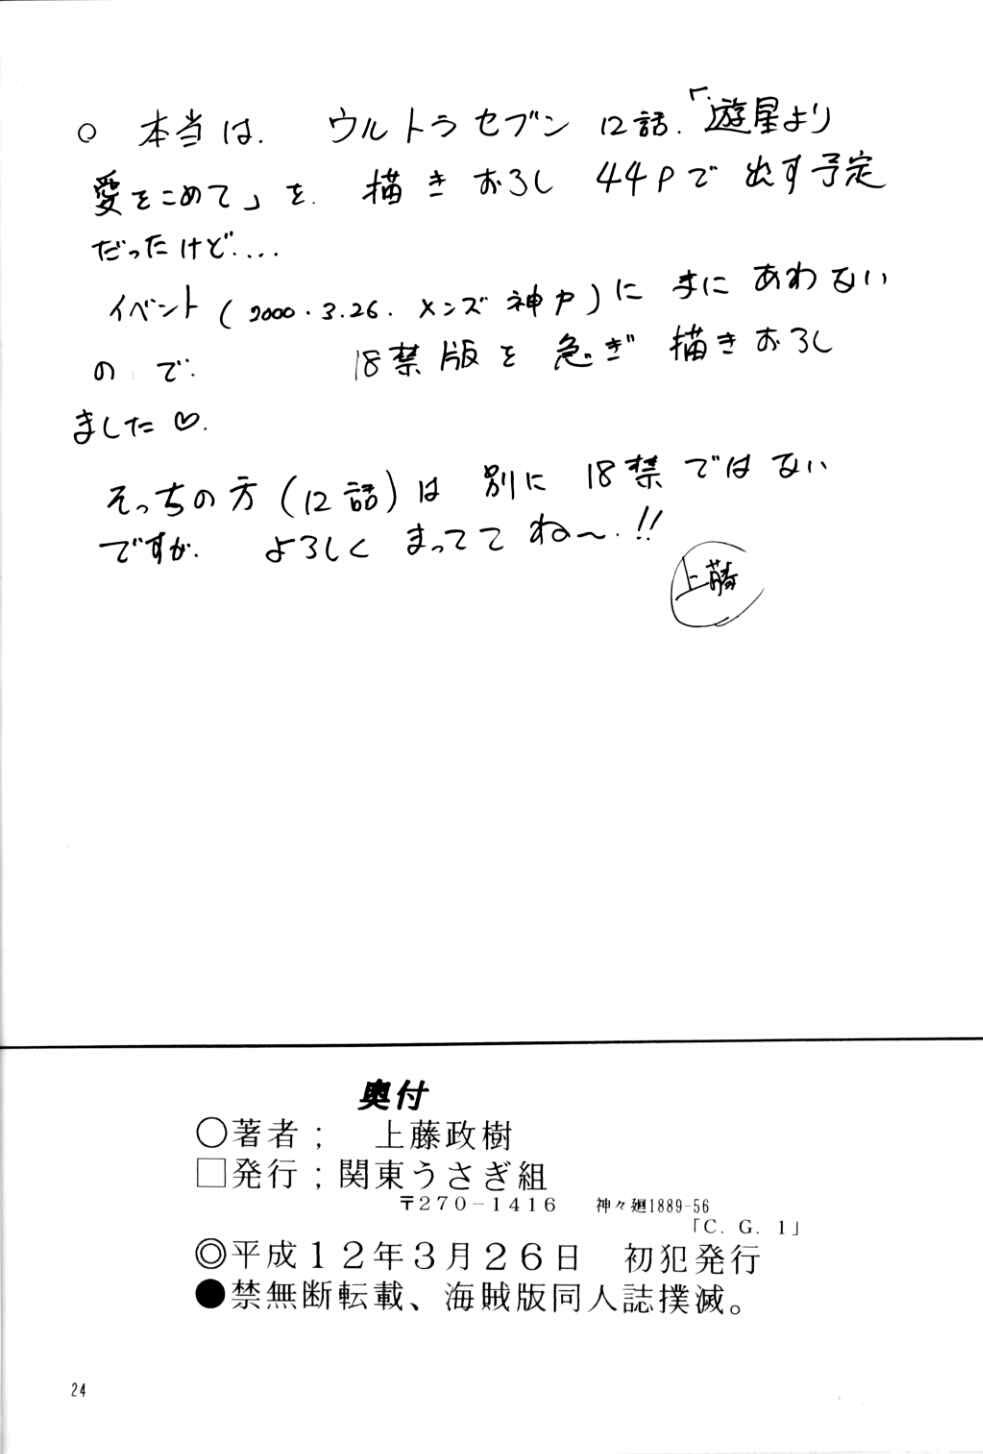 ○ 本当は. ウルトラセブン 12話.「遊星より
愛をこめて」を. 描きおろし 44Pで 出す予定
だったけど....
イベント(2000.3.26. メンズ神戸)に まにあわない
ので. 18禁版を 急ぎ 描きおろし
ました♡.
そっちの方(12話)は 別に 18禁ではない
ですが. よろしく まっててね〜.!!
上藤
奥付
○著者; 上藤政樹
□発行;関東うさぎ組
〒270-1416 神々廻1889-56
「C. G. 1」
◎平成12年3月26日 初犯発行
●禁無断転載、海賊版同人誌撲滅。
24